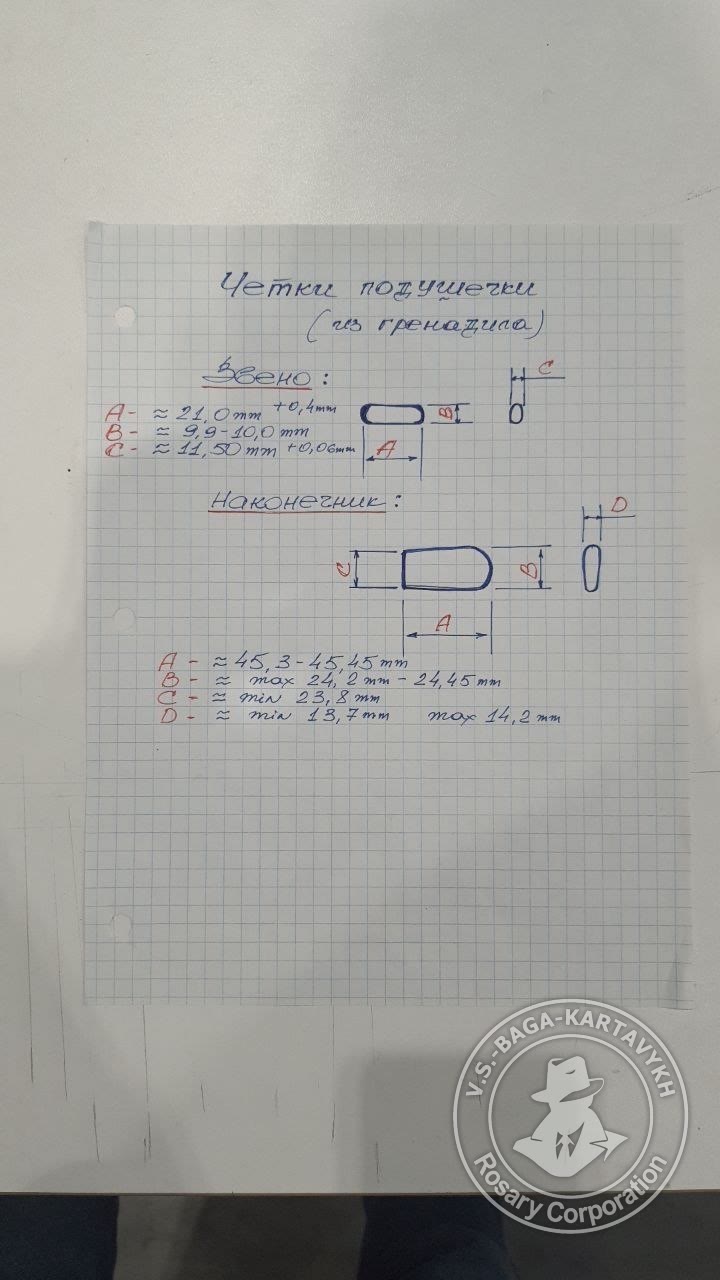 Четки подушечки
(из гренадила)
Звено:
A - ≈ 21,0 mm +0,4mm
B - ≈ 9,9-10,0 mm
C - ≈ 11,50 mm +0,06mm
A
B
C
Наконечник:
C
A
B
D
A - ≈ 45,3-45,45 mm
B - ≈ max 24,2 mm - 24,45 mm
C - ≈ min 23,8 mm
D - ≈ min 13,7 mm max 14,2 mm
V.S.-BAGA-KARTAVYKH
Rosary Corporation